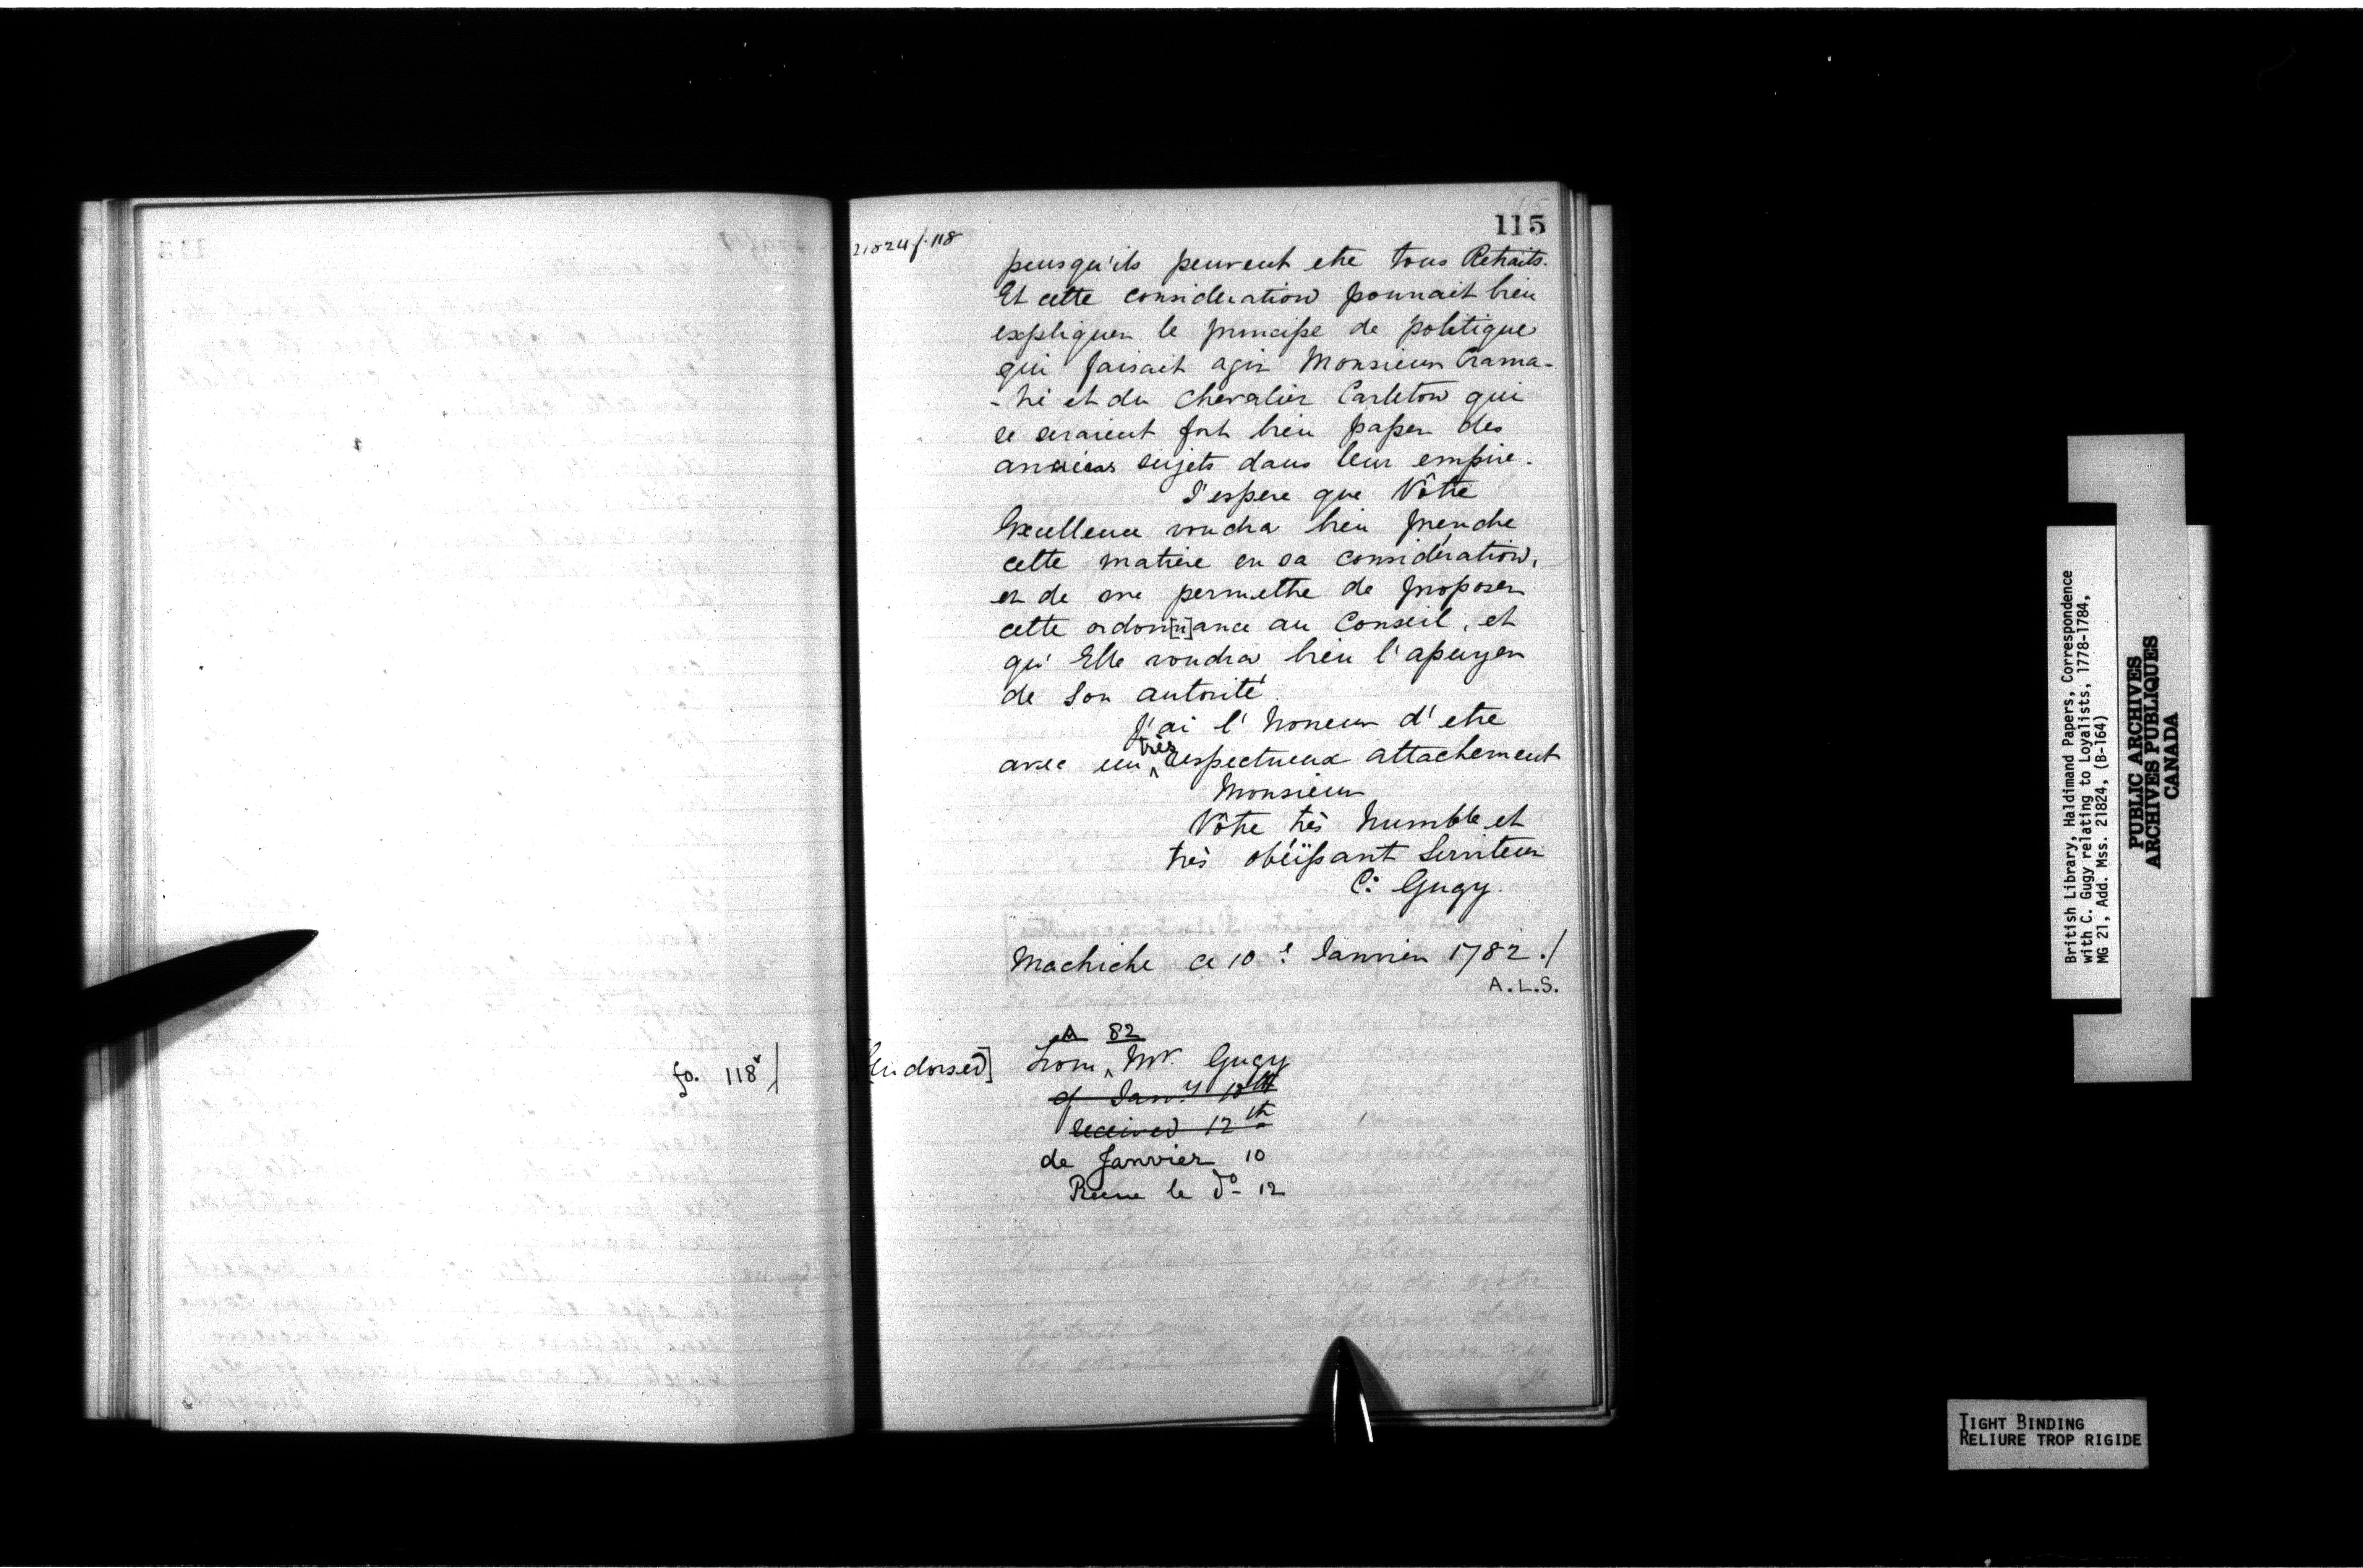 115
21824 f. 118
puisqu'ils peuvent etre tous Retraits.
Et cette consideration pourrait bien
expliquer le principe de politique
qui faisait agir Monsieur Crama-
-hé et du Chevalier Carleton qui
se seraient fort bien passer des
anciens sujets dans leur empire.
J'espere que Vôtre
Excellence voudra bien prendre
cette matiere en sa considération,
et de me permettre de proposer
cette ordon[n]ance au Conseil, et
qu' Elle voudra bien l'apuyer
de Son autorité.
J'ai l'honeur d'etre
avec un très respectueux attachement
Monsieur
Vôtre très humble et
très obéissant Serviteur
C: Gugy.
Machiche ce 10e Janvier 1782 ./
A.L.S.
fo. 118v/
[Endorsed]
A 82
From Mr. Gugy
of Jany 10th
received 12th
de Janvier 10
Recue le do 12
British Library, Haldimand Papers, Correspondence
with C. Gugy relating to Loyalists, 1778-1784,
MG 21, Add. Mss. 21824, (B-164)
PUBLIC ARCHIVES
ARCHIVES PUBLIQUES
CANADA
TIGHT BINDING
RELIURE TROP RIGIDE